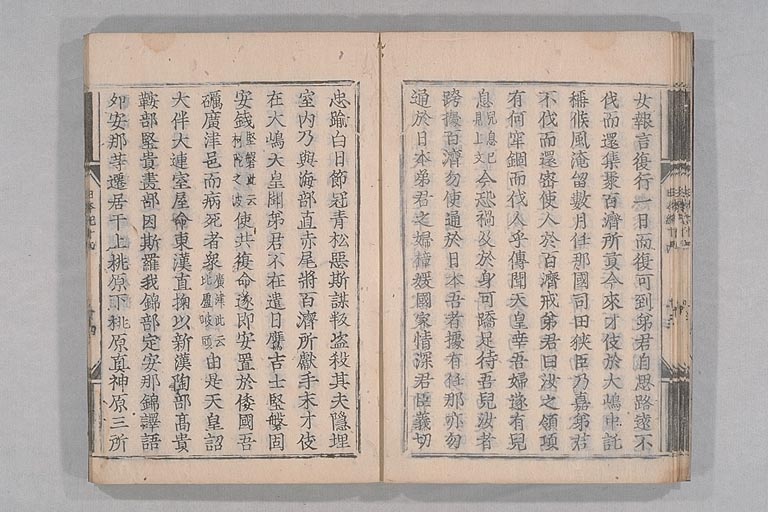 女報言復行一日而復可到弟君自思路遠不
伐而還集聚百濟所貢今來才伎於大嶋中託
稱候風淹留數月任那國司田狹臣乃嘉弟君
不伐而還密使人於百濟戒弟君曰汝之領項
有何窂錮而伐人乎傳聞天皇幸吾婦遂有兒
息兒息已見上文今恐禍及於身可蹻足待吾兒汝者
跨據百濟勿使通於日本吾者據有任那亦勿
通於日本弟君之婦樟媛國家情深君臣義切
忠踰白日節冠青松惡斯謀叛盗殺其夫隱埋
室内乃與海部直赤尾將百濟所獻手末才伎
在大嶋天皇聞弟君不在遣日鷹吉士堅磐固
安錢堅磐此云柯陀之波使共復命遂即安置於倭國吾
礪廣津邑而病死者衆廣津此云比盧岐頭由是天皇詔
大伴大連室屋命東漢直掬以新漢陶部高貴
鞍部堅貴畫部因斯羅我錦部定安那錦譯語
卯安那等遷居于上桃原下桃原真神原三所